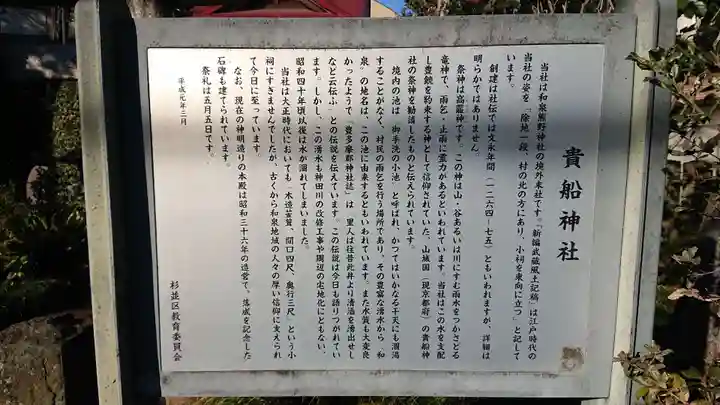 貴船神社
当社は和泉熊野神社の境外末社です。『新編武蔵風土記稿』は江戸時代の
当社の姿を「除地一段、村の北の方にあり、小祠を東向に立つ」と記して
います。
創建は社伝では文永年間（一二六四―七五）ともいわれますが、詳細は
明らかではありません。
祭神は高龗神です。この神は山・谷あるいは川にすむ雨水をつかさどる
竜神で、雨乞・止雨に霊力があるといわれています。当社はこの水を支配
し豊饒を約束する神として信仰されていた、山城国（現京都府）の貴船神
社の祭神を勧請したものと伝えられています。
境内の池は、御手洗の小池、と呼ばれ、かつてはいかなる干天にも涸渇
することがなく、村民の雨乞を行う場所であり、その豊富な湧水から〝和
泉〟の地名は、この池に由来するともいわれています。また水質も大変良
かったようで『豊多摩郡神社誌』は〝里人は往昔此井より清酒を湧出せし
など云伝ふ〟との伝説を伝えています。この伝説は今日も語りつがれてい
ます。しかし、この湧水も神田川の改修工事や周辺の宅地化にともない、
昭和四十年頃以後は水が涸れてしまいました。
当社は大正時代においても〝木造萱葺、間口四尺、奥行三尺〟という小
祠にすぎませんでしたが、古くから和泉地域の人々の厚い信仰に支えられ
て今日に至っています。
なお、現在の神明造りの本殿は昭和三十六年の造営で、落成を記念した
石碑も建てられています。
祭礼は五月五日です。
平成元年三月
杉並区教育委員会